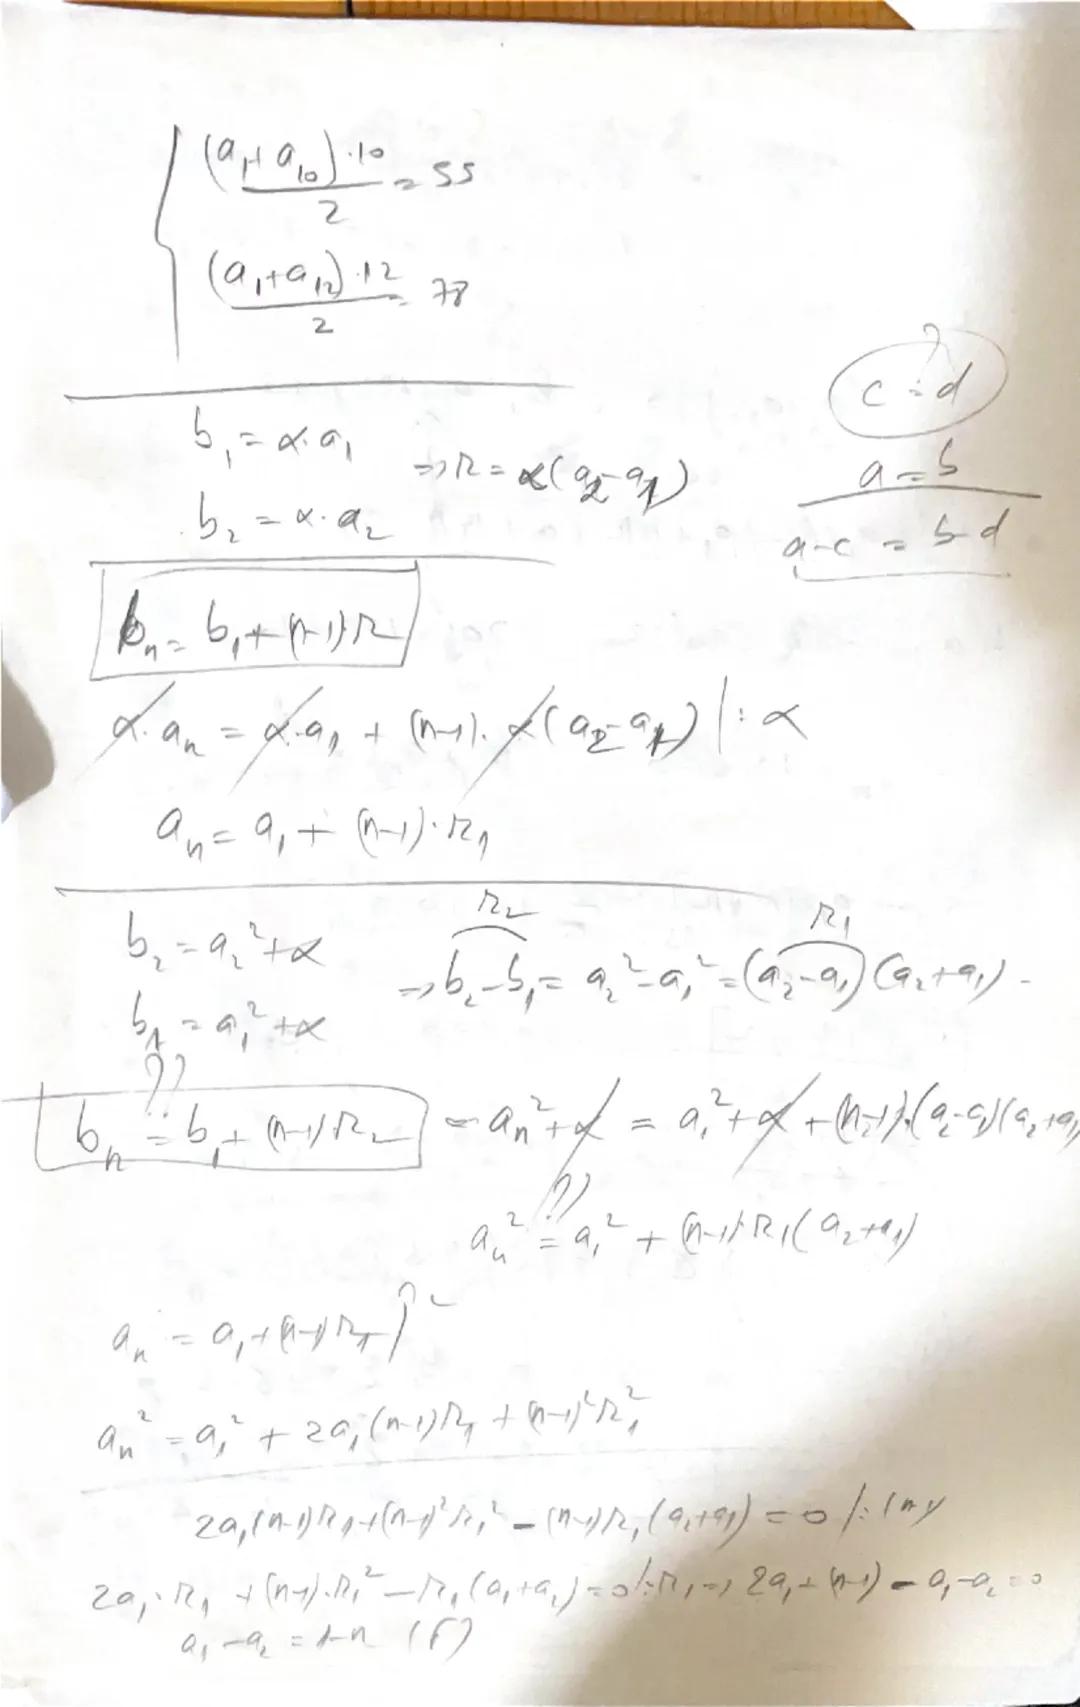 (a₁+a₁₀)·10 / 2 = 55
(a₁+a₁₂)·12 / 2 = 78
b₁ = α·a₁
b₂ = α·a₂
⇒ r = α(a₂-a₁)
c = d
a = b
a-c = b-d
bₙ = b₁ + (n-1)r
α·aₙ = α·a₁ + (n-1)·α(a₂-a₁) |:α
aₙ = a₁ + (n-1)·r₁
b₂ = a₂² + α
b₁ = a₁² + α
r₂ r₁
⇒ b₂-b₁ = a₂²-a₁² = (a₂-a₁)(a₂+a₁)
??
bₙ = b₁ + (n-1)r₂ = aₙ²+α = a₁²+α+(n-1)·(a₂-a₁)(a₂+a₁)
??
aₙ² = a₁² + (n-1)·r₁(a₂+a₁)
aₙ = a₁+(n-1)r₁ /²
aₙ² = a₁² + 2a₁(n-1)r₁ + (n-1)²r₁²
2a₁(n-1)r₁+(n-1)²r₁² - (n-1)r₁(a₂+a₁) = 0 /:(n-1)
2a₁·r₁ + (n-1)·r₁² - r₁(a₁+a₂) = 0 /:r₁ ⇒ 2a₁+(n-1)-a₁-a₂=0
a₁-a₂ = 1-n (F)